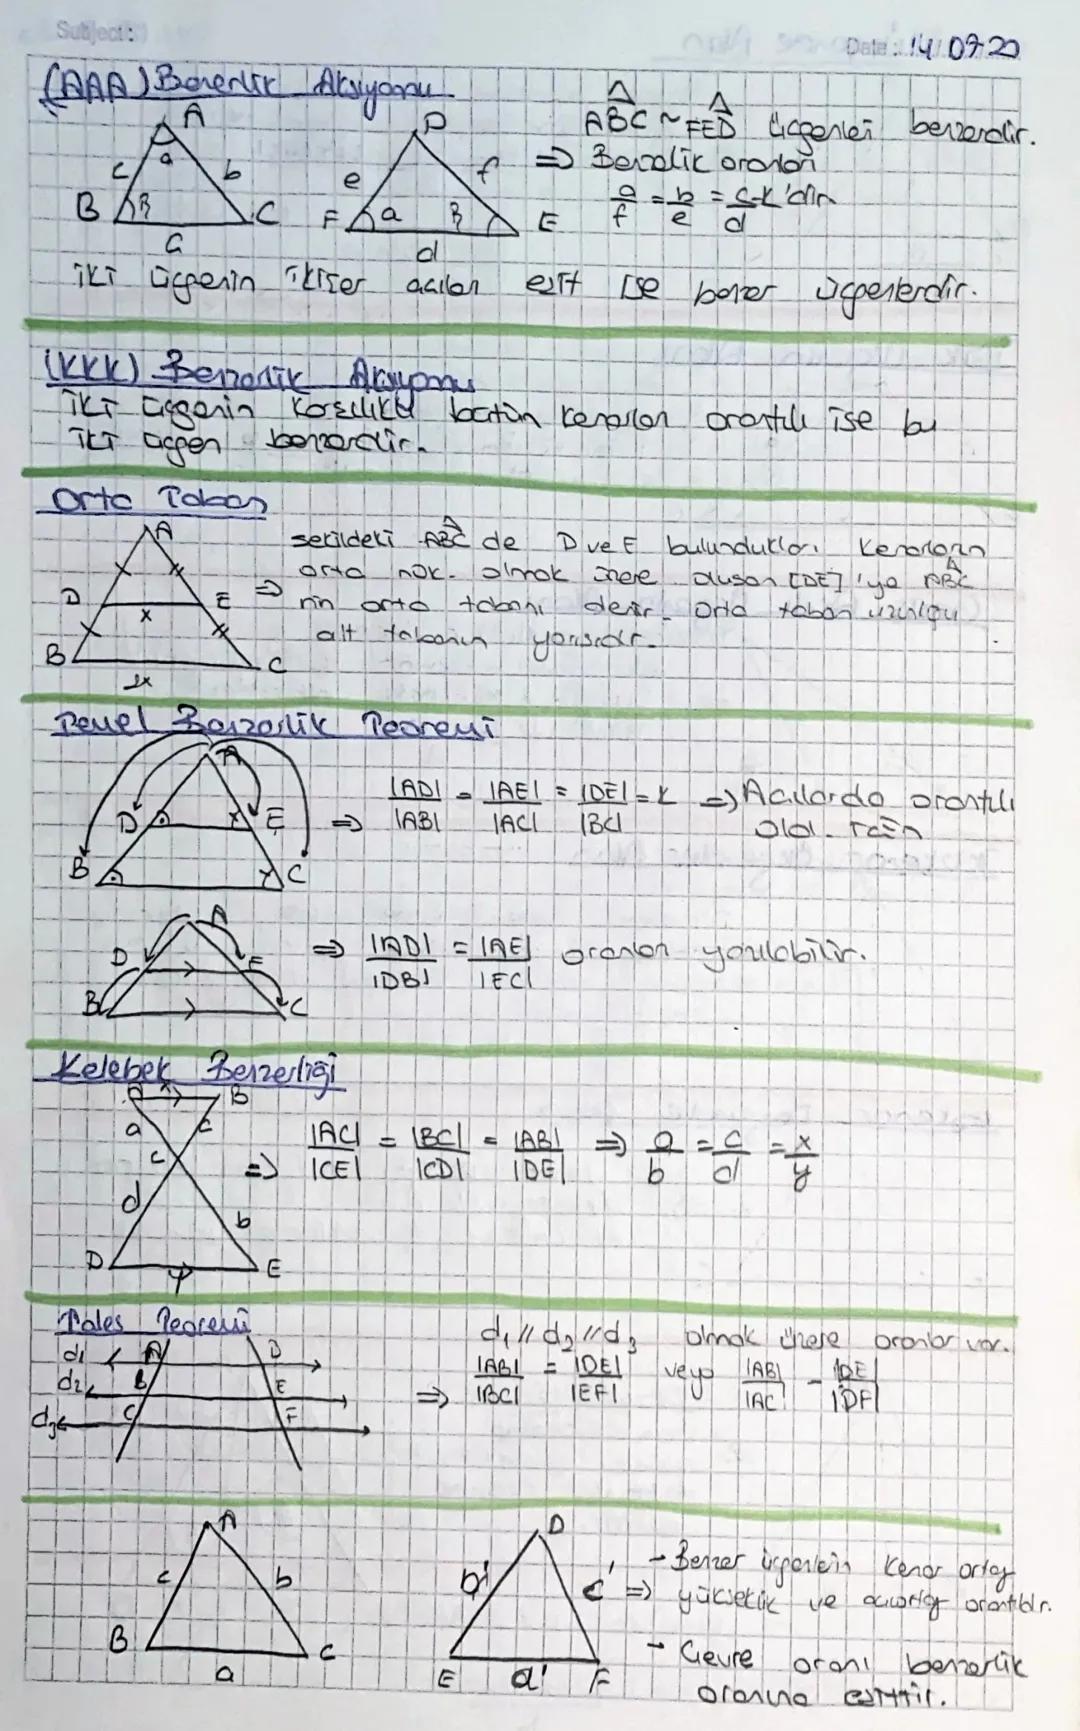 Subject:
Date: 14.09.20
(AAA) Benzerlik Aksiyomu
ABC ~ FED üçgenleri benzerdir.
⇒ Benzerlik oranları
a/f = b/e = c/d = k'dır
A
c a b
B B C
a
D
e f
F a B E
d
iki üçgenin ikişer açıları eşit ise benzer üçgenlerdir.
(KKK) Benzerlik Aksiyomu
iki üçgenin karşılıklı bütün kenarları orantılı ise bu
iki üçgen benzerdir.
Orta Taban
A
D E
x
B C
2x
şekildeki ABC de D ve E bulundukları kenarların
orta nok. olmak üzere oluşan [DE] 'ya ABC
nin orta tabanı denir. Orta taban uzunluğu
alt tabanın yarısıdır.
Temel Benzerlik Teoremi
A
D x E
B x C
⇒ |AD|/|AB| = |AE|/|AC| = |DE|/|BC| = k ⇒ Açılarda orantılı
old. için
A
D E
B C
⇒ |AD|/|DB| = |AE|/|EC| oranları yazılabilir.
Kelebek Benzerliği
A x B
a c
C
d b
D y E
⇒ |AC|/|CE| = |BC|/|CD| = |AB|/|DE| ⇒ a/b = c/d = x/y
Tales Teoremi
d1 A D
d2 B E
d3 C F
d1 // d2 // d3 olmak üzere oranlar var.
⇒ |AB|/|BC| = |DE|/|EF| veya |AB|/|AC| = |DE|/|DF|
A
c b
B C
a
D
b' c'
E a' F
⇒ - Benzer üçgenlerin kenarortay
yükseklik ve açıortay orantılıdır.
- Çevre oranı benzerlik
oranına eşittir.